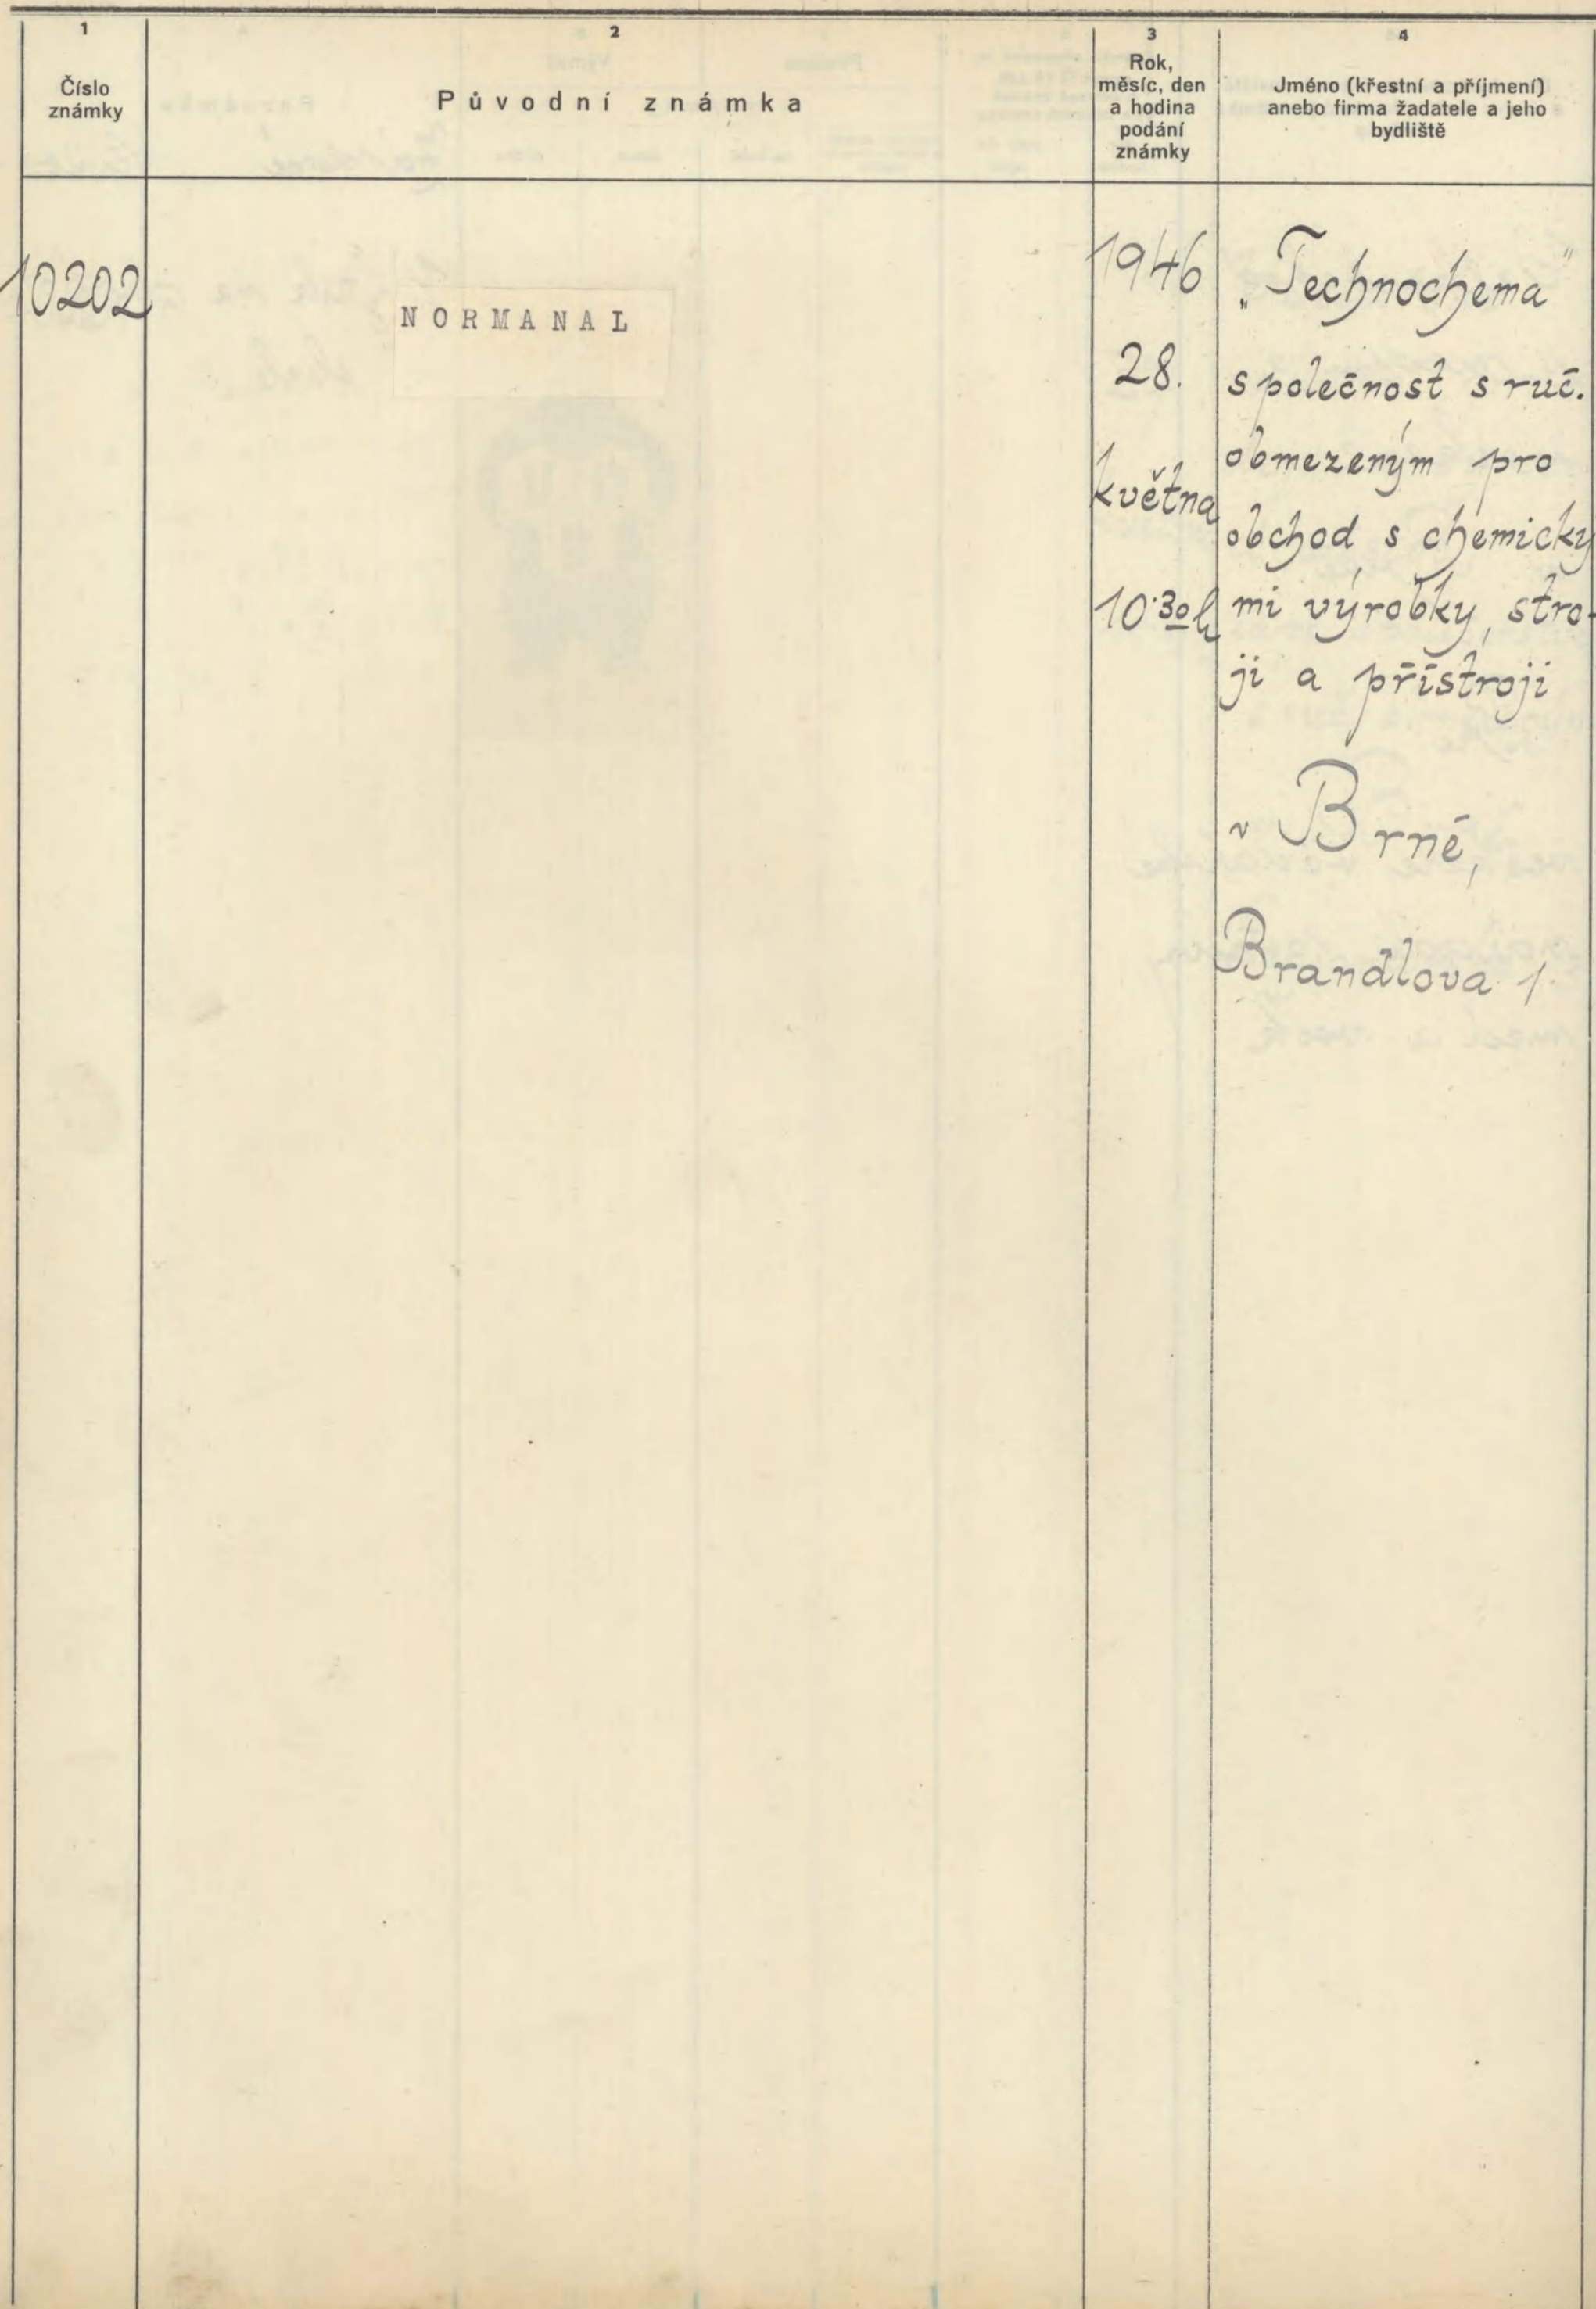 1
Číslo
známky
2
Původní známka
3
Rok,
měsíc, den
a hodina
podání
známky
4
Jméno (křestní a příjmení)
anebo firma žadatele a jeho
bydliště
10202
NORMANAL
1946
28.
května
10·30 h
„Technochema"
společnost s ruč.
obmezeným pro
obchod s chemický
mi výrobky, stro-
ji a přístroji
v Brně,
Brandlova 1.